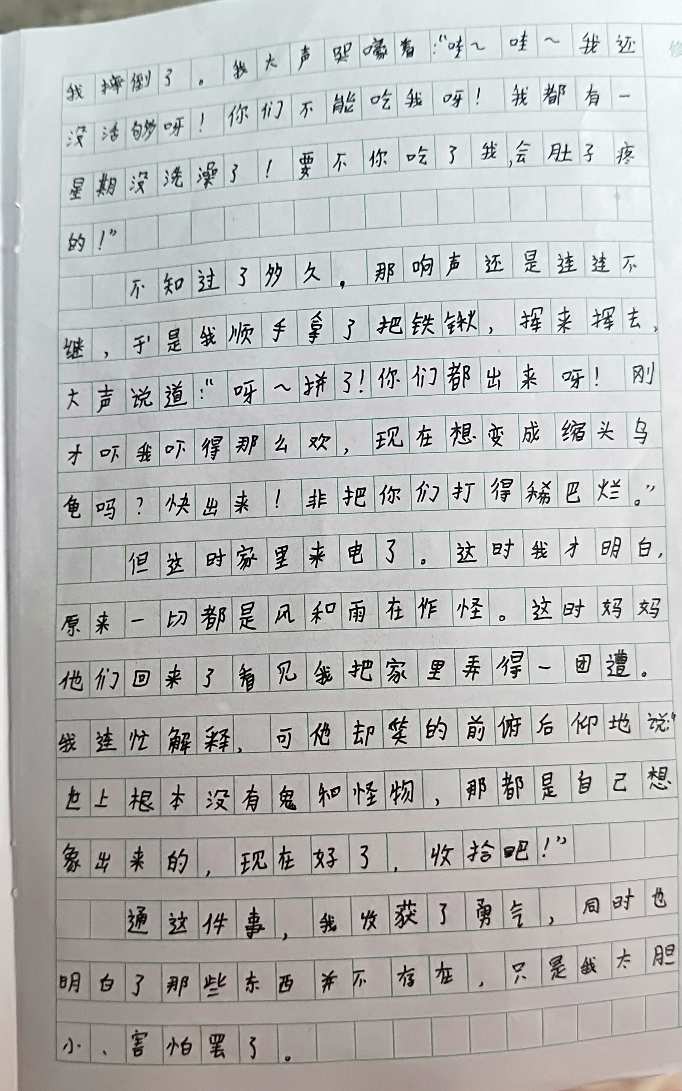 我摔倒了。我大声哭嚎着:“哇~哇~我还
没活够呀!你们不能吃我呀!我都有一
星期没洗澡了!要不你吃了我,会肚子疼
的!”
不知过了多久。那响声还是连连不
继,于是我顺手拿了把铁锹,挥来挥去,
大声说道:“呀~拼了!你们都出来呀!刚
才吓我吓得那么欢,现在想变成缩头乌
龟吗?快出来!非把你们打得稀巴烂。”
但这时家里来电了。这时我才明白,
原来一切都是风和雨在作怪。这时妈妈
他们回来了看见我把家里弄得一团遭。
我连忙解释,可他却笑的前俯后仰地说:“
世上根本没有鬼和怪物,那都是自己想
象出来的,现在好了,收拾吧!”
通这件事,我收获了勇气,同时也
明白了那些东西并不存在,只是我太胆
小、害怕罢了。